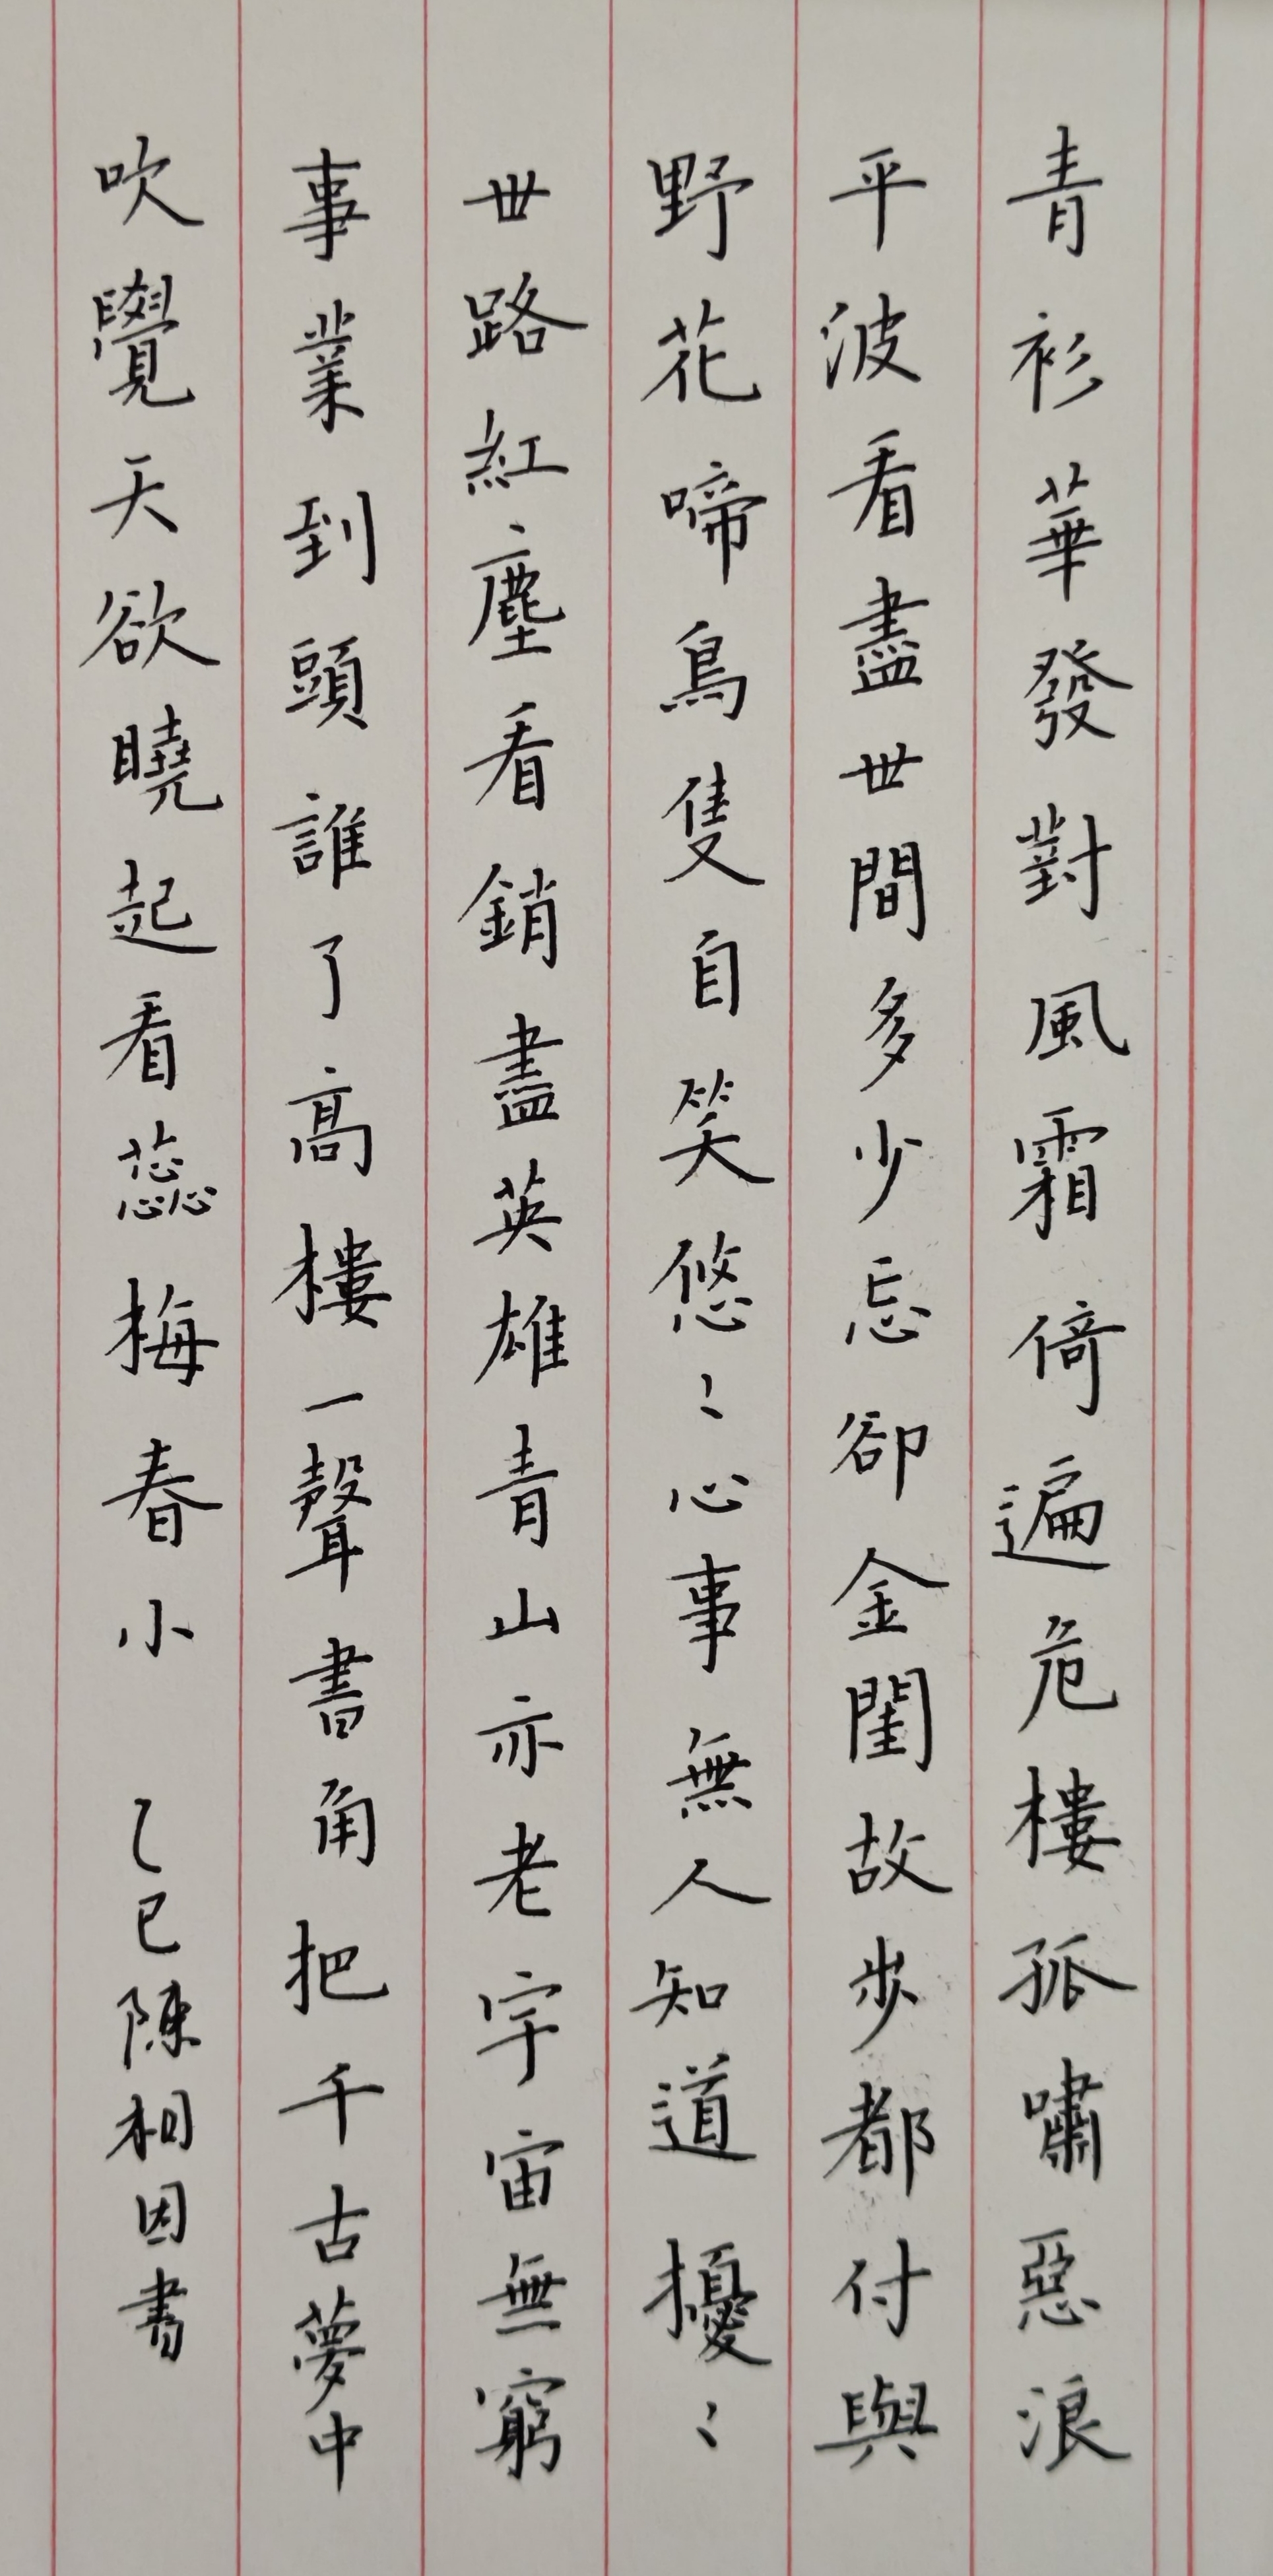 青衫華發對風霜倚遍危樓孤嘯惡浪
平波看盡世間多少忘卻金閨故步都付與
野花啼鳥隻自笑悠〻心事無人知道擾〻
世路紅塵看銷盡英雄青山亦老宇宙無窮
事業到頭誰了高樓一聲書角把千古夢中
吹覺天欲曉起看蕊梅春小 乙巳陳相因書